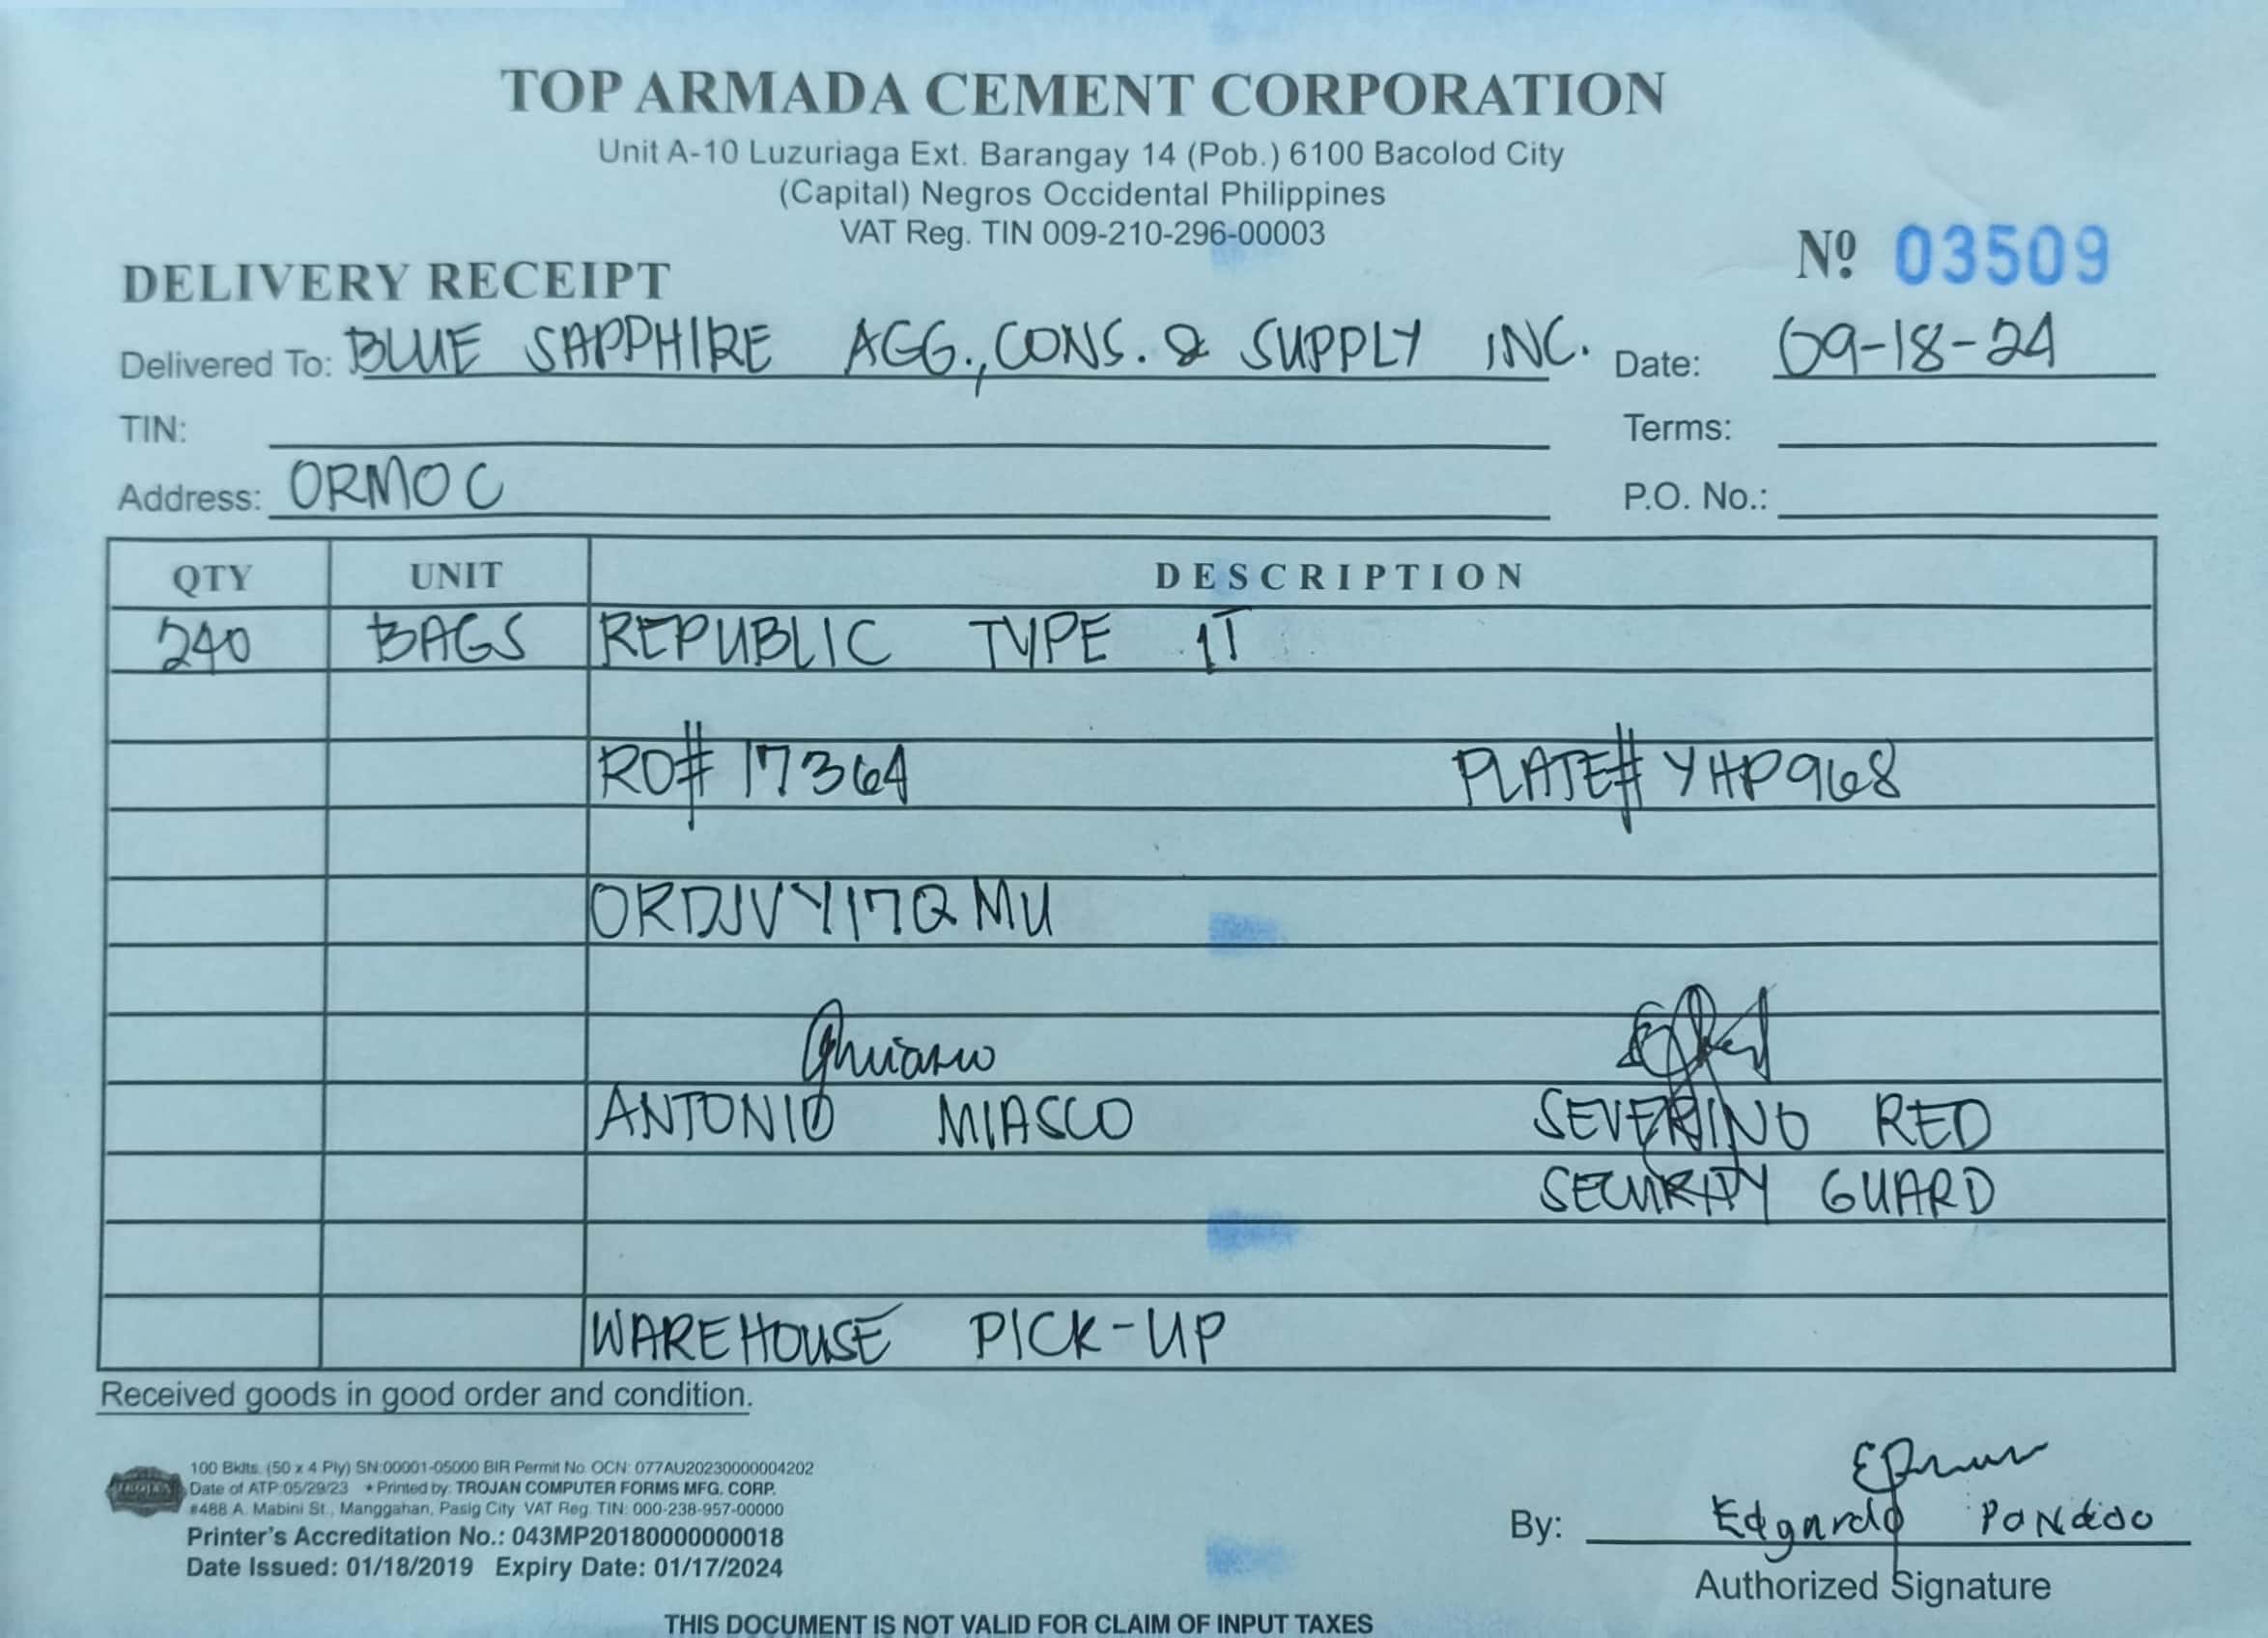 TOP ARMADA CEMENT CORPORATION
Unit A-10 Luzuriaga Ext. Barangay 14 (Pob.) 6100 Bacolod City
(Capital) Negros Occidental Philippines
VAT Reg. TIN 009-210-296-00003
DELIVERY RECEIPT Nº 03509
Delivered To: BLUE SAPPHIRE AGG., CONS. & SUPPLY INC. Date: 09-18-24
TIN: Terms:
Address: ORMOC P.O. No.:
QTY UNIT DESCRIPTION
240 BAGS REPUBLIC TYPE 1T
RO# 17364 PLATE# YHP968
ORDJVY17QMU
ANTONIO MIASCO SEVERINO RED
SECURITY GUARD
WAREHOUSE PICK-UP
Received goods in good order and condition.
100 Bklts. (50 x 4 Ply) SN:00001-05000 BIR Permit No. OCN: 077AU20230000004202
Date of ATP:05/29/23 * Printed by: TROJAN COMPUTER FORMS MFG. CORP.
#488 A. Mabini St., Manggahan, Pasig City VAT Reg. TIN: 000-238-957-00000
Printer's Accreditation No.: 043MP20180000000018
Date Issued: 01/18/2019 Expiry Date: 01/17/2024
By: Edgardo
Authorized Signature
THIS DOCUMENT IS NOT VALID FOR CLAIM OF INPUT TAXES